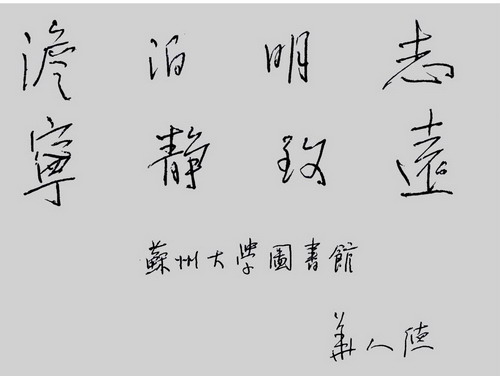 澹泊明志
寧静致遠
蘇州大學圖書館
華人德